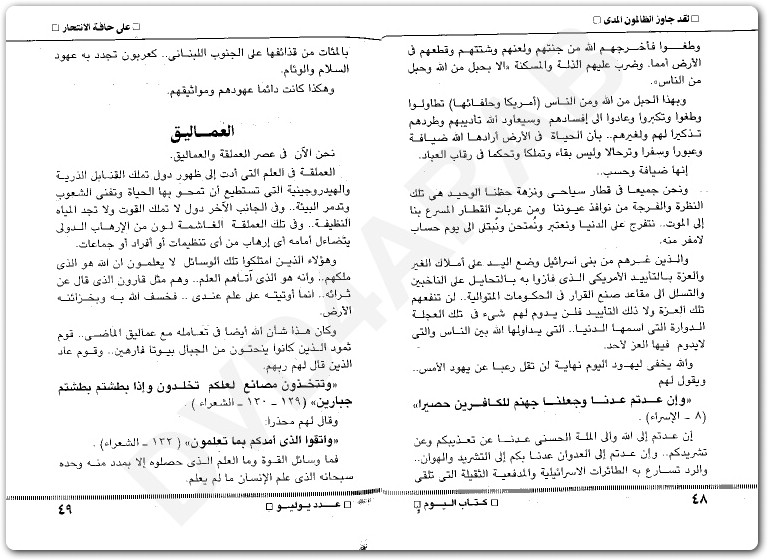 □ لقد جاوز الظالمون المدى □
وطغـوا فـأخرجـهم الله من جنتهم ولعنهم وشتتهم وقطعهم فى
الأرض أمما. وضرب عليهم الذلة والمسكنة «الا بحبل من الله وحبل
من الناس».
وبهذا الحبل من الله ومن الناس (أمريكا وحلفـائها) تطاولـوا
وطغوا وتكبروا وعادوا الى إفسـادهم وسيعاود الله تأديبهم وطردهم
تذكيرا لهم ولغيرهم.. بأن الحياة فى الأرض أرادها الله ضيـافة
وعبورا وسفرا وترحالا وليس بقاء وتملكا وتحكما فى رقاب العباد.
إنها ضيافة وحسب..
ونحن جميعـا فى قطار سيـاحى ونزهة حظنـا الوحيد هى تلك
النظرة والفرجة من نوافذ عيوننا ومن عربات القطـار المسرع بنا
إلى الموت.. نتفرج على الدنيـا ونعتبر ونُمتحن ونُبتلى الى يوم حساب
لامفر منه.
والـذين غـرهم من بنى اسرائيل وضع اليـد على أمـلاك الغير
والعزة بالتـأييد الأمريكى الـذى فازوا به بـالتحايل على النـاخبين
والتسلل الى مقاعد صنع القرار فى الحكومات المتوالية.. لن تنفعهم
تلك العـزة ولا ذلك التأييد فلـن يدوم لهم شىء فى تلك العجلـة
الدوارة التى اسمهـا الدنيـا.. التى يداولهـا الله بين الناس والتى
لايدوم فيها العز لأحد.
والله يخفى ليهود اليوم نهاية لن تقل رعبـا عن يهود الأمس..
ويقول لهم
«وإن عدتم عدنـا وجعلنـا جهنم للكافـرين حصيرا»
(٨ ـ الإسراء) .
إن عدتم إلى الله والى الملـة الحسنى عدنـا عن تعذيبكم وعن
تشريدكم.. وإن عدتم إلى العدوان عدنا بكم إلى التشريد والهوان..
والرد تسارع به الطائرات الاسرائيلية والمدفعية الثقيلة التى تلقى
٤٨ □ كتاب اليـوم □
□ على حافة الانتحار □
بالمئات من قذائفها على الجنوب اللبنانى.. كعربون تجدد به عهود
السلام والوئام.
وهكذا كانت دائما عهودهم ومواثيقهم.
العمـاليق
نحن الآن فى عصر العملقة والعماليق.
العملقـة فى العلم التى أدت إلى ظهور دول تملك القنـابل الذرية
والهيدروجينية التى تستطيع أن تمحـو بها الحياة وتفنى الشعوب
وتدمر البيئة.. وفى الجانب الآخر دول لا تملك القوت ولا تجد المياه
النظيفـة.. وفى تلك العملقـة الغاشمـة لـون من الإرهـاب الـدولى
يتضاءل أمامه أى إرهاب من أى تنظيمات أو أفراد أو جماعات.
وهؤلاء الذين امتلكوا تلك الوسائل لا يعلمـون ان الله هو الذى
ملكهم.. وانه هو الذى آتـاهم العلم.. وهم مثل قارون الذى قال عن
ثرائه.. انما أوتيتـه على علم عندى.. فخسف الله بـه وبخـزائنـه
الأرض.
وكان هـذا شـأن الله أيضـا فى تعامله مع عماليق الماضـى.. قوم
ثمود الـذين كانوا ينحتـون من الجبال بيوتـا فارهين.. وقـوم عاد
الذين قال لهم ربهم.
«وتتخذون مصانع لعلكم تخلـدون وإذا بطشتم بطشتم
جبارين» (١٢٩ ـ ١٣٠ ـ الشعراء) .
وقال لهم محذرا:
«واتقوا الذى أمدكم بما تعلمون» (١٣٢ ـ الشعراء) .
فما وسائل القوة وما العلم الـذى حصلوه إلا بمدد منـه وحده
سبحانه الذى علم الإنسان ما لم يعلم.
□ عـدد يـوليـو □ ٤٩